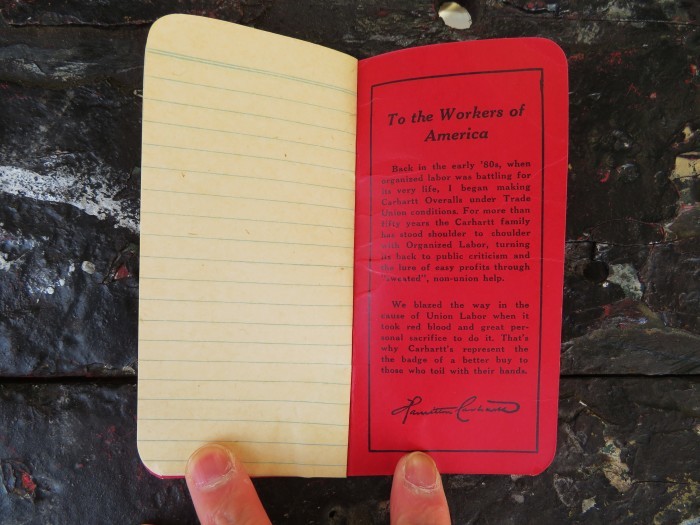 To the Workers of
America
Back in the early '80s, when
organized labor was battling for
its very life, I began making
Carhartt Overalls under Trade
Union conditions. For more than
fifty years the Carhartt family
has stood shoulder to shoulder
with Organized Labor, turning
its back to public criticism and
the lure of easy profits through
"sweated", non-union help.
We blazed the way in the
cause of Union Labor when it
took red blood and great per-
sonal sacrifice to do it. That's
why Carhartt's represent the
the badge of a better buy to
those who toil with their hands.
Hamilton Carhartt